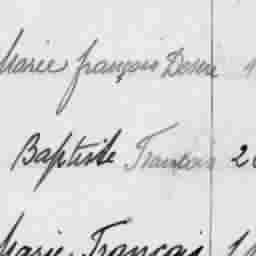 Marie françois Desire
Baptiste Francois 2
Marie François 1